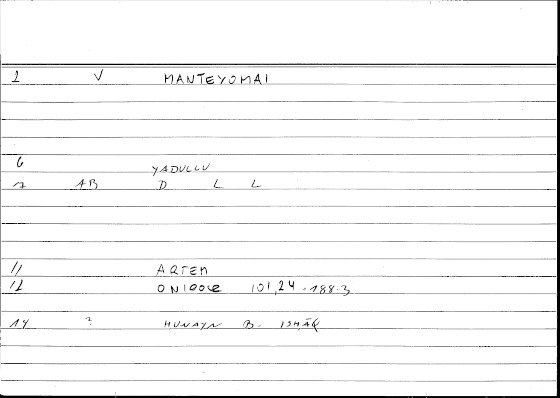 1 V MANTEYOMAI
6 YADULLU
7 AB D L L
11 ARTEM
12 101,24 - 188.3
14 ? HUNAYN B. ISḤĀQ